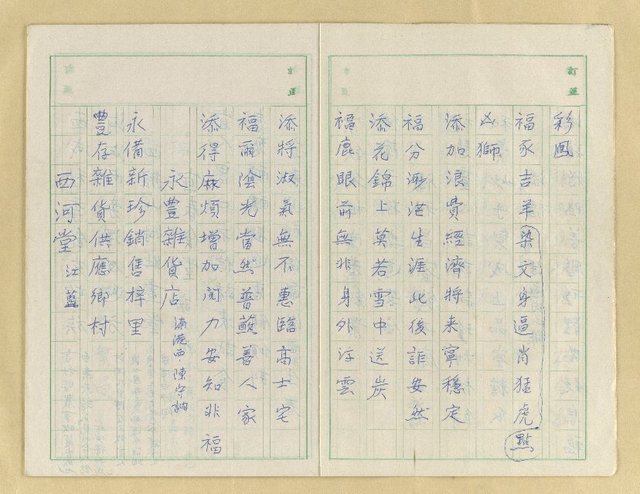 彩鳳
福豕吉羊染文身逼肖猛虎點
凶獅
添加浪費經濟將来寧穩定
福分渺茫生涯此後誰安然
添花錦上莫若雪中送炭
福鹿眼前無非身外浮雲
添將淑氣無不惠臨高士宅
福爾陰光當然普蘇善人家
添得麻煩增加閱力安知非福
永豐雜貨店 西 陳守
永備新珍銷售梓里
豐存雜貨供應鄉村
西河堂 江 藍